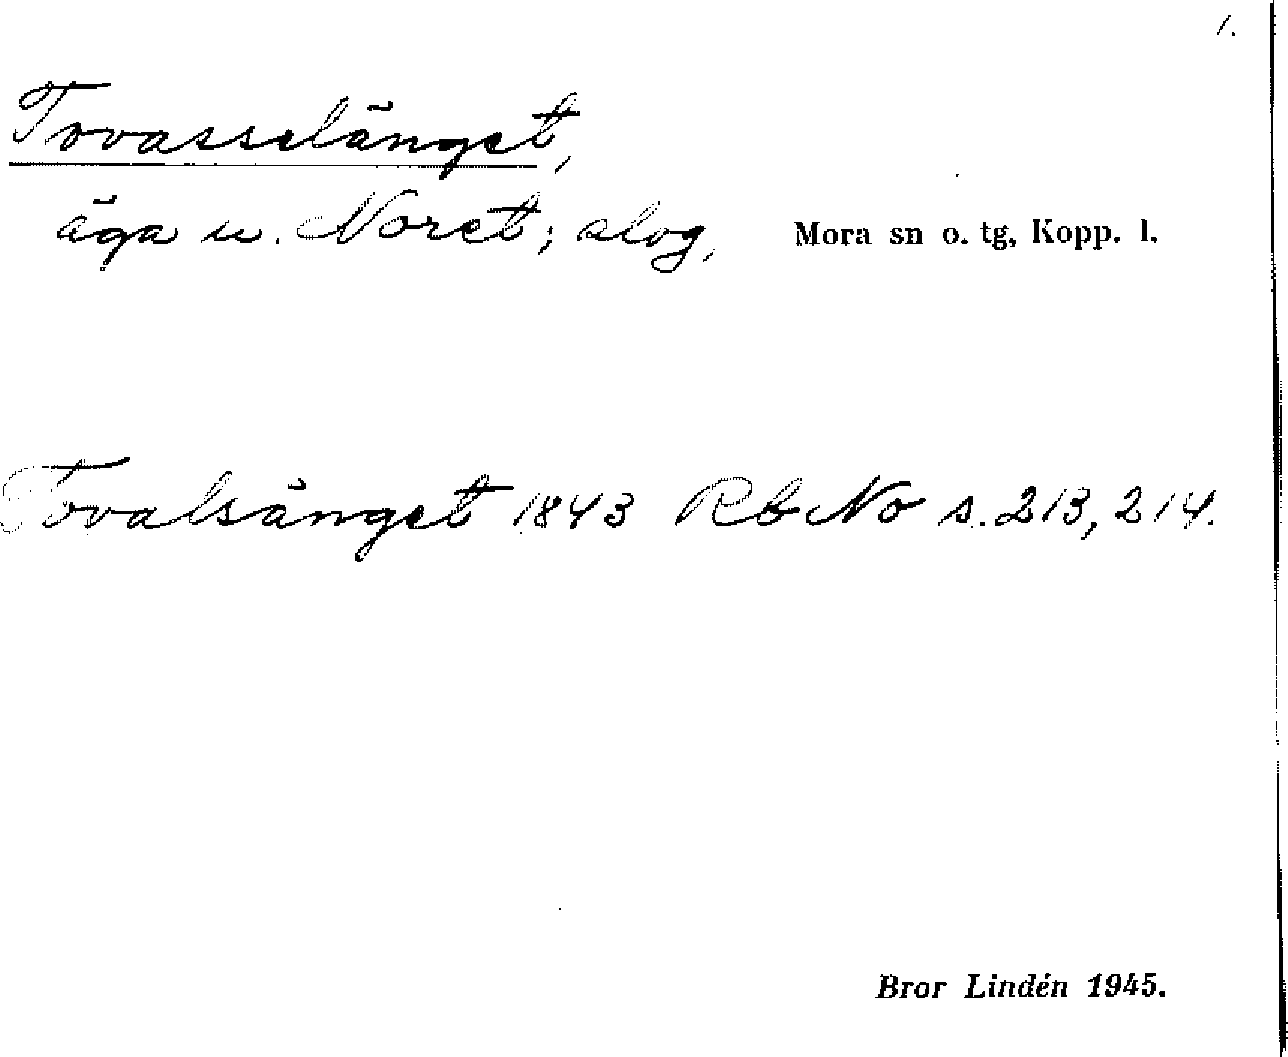 1.
Tovasselänget,
äga u. Noret; slog,
Mora sn o. tg, Kopp. l.
Tovalsänget 1843 Rb No s. 213, 214.
Bror Lindén 1945.